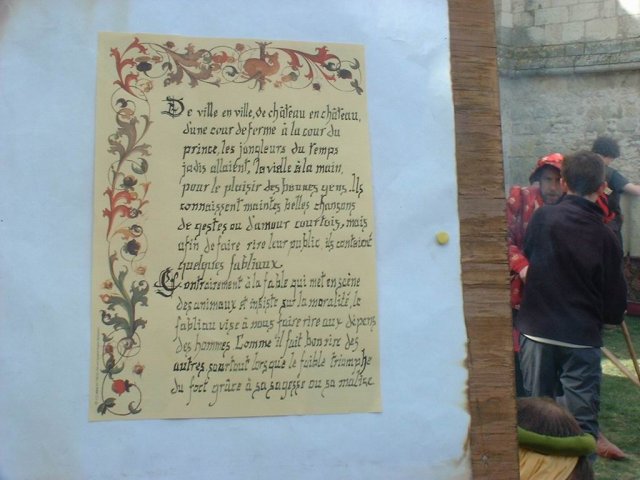 De ville en ville, de château en château,
d'une cour de ferme à la cour du
prince, les jongleurs du temps
jadis allaient, la vielle à la main,
pour le plaisir des bonnes gens. Ils
connaissent maintes belles chansons
de gestes ou d'amour courtois, mais
afin de faire rire leur public ils content
quelques fabliaux.
Contrairement à la fable qui met en scène
des animaux et insiste sur la moralité, le
fabliau vise à nous faire rire aux dépens
des hommes. Comme il fait bon rire des
autres, surtout lorsque le faible triomphe
du fort grâce à sa sagesse ou sa malice.